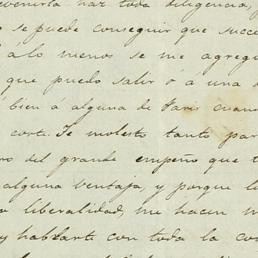 venirla haz toda diligencia,
se puede conseguir que succe
á lo menos se me agregu
que puedo salir o a una d
bien á alguna de Paris cuan
corte. Te molesto tanto par
ro del grande empeño que t
alguna ventaja, y porque l
liberalidad, me hacen m
y hablarte con toda la co